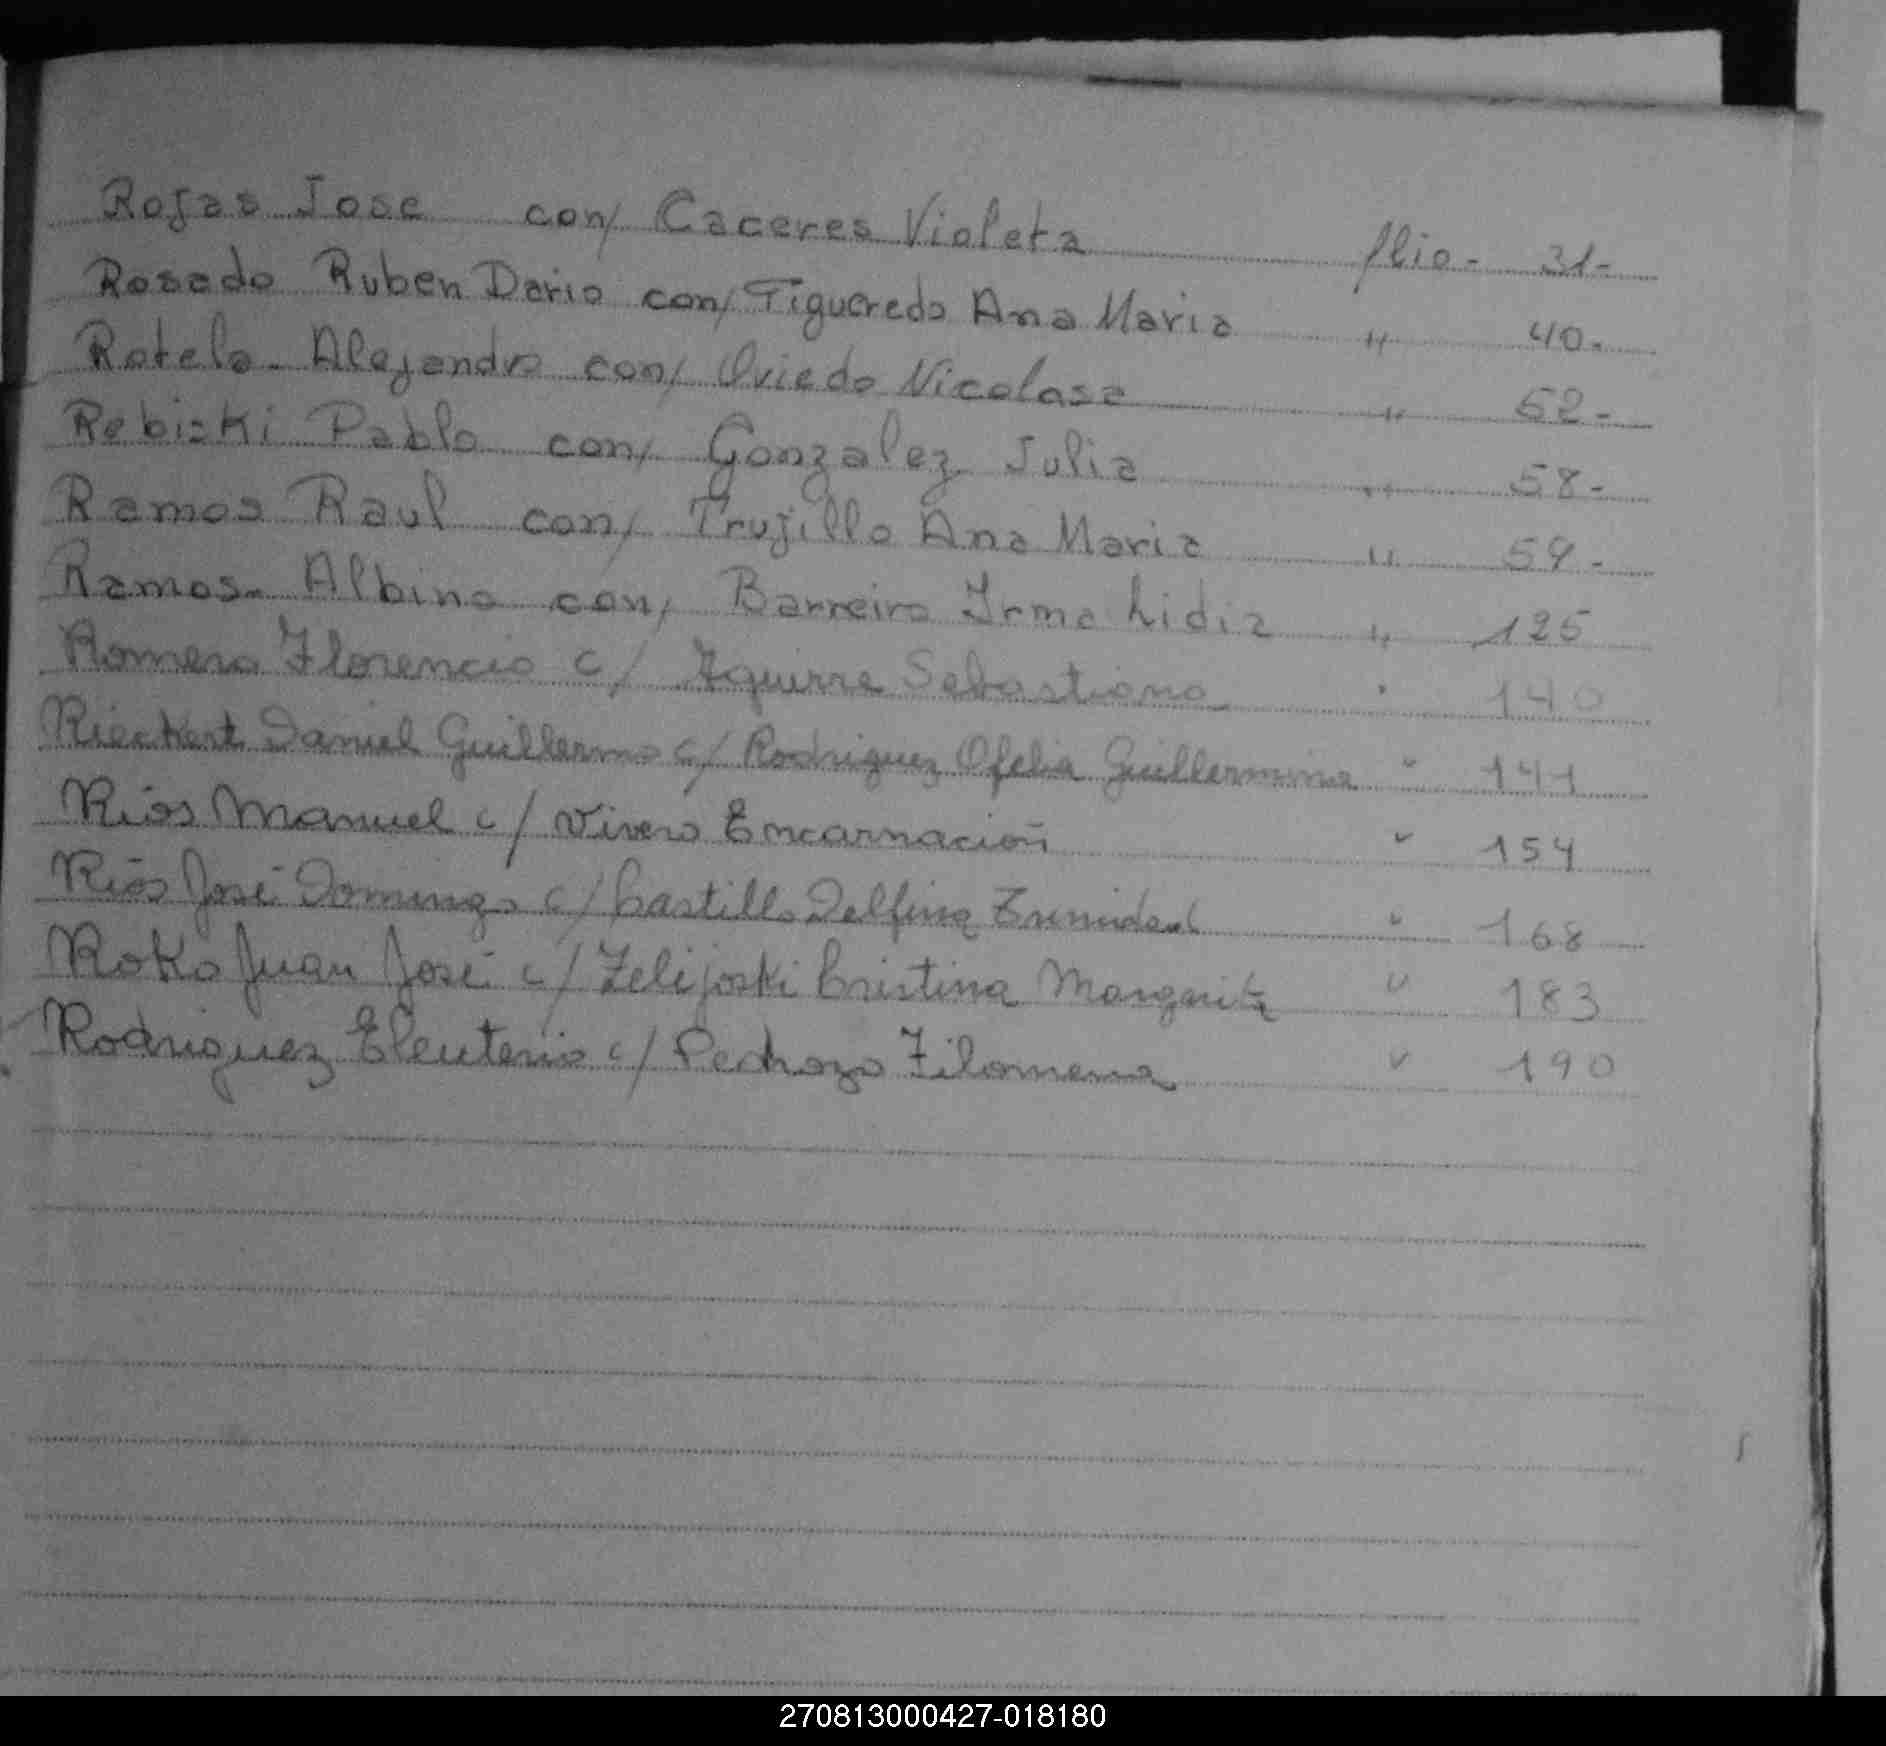 Rojas Jose con/ Caceres Violeta flio- 31-
Rosado Ruben Dario con/ Figueredo Ana Maria " 40-
Rotela- Alejandro con/ Oviedo Nicolasa " 52-
Rebiski Pablo con/ Gonzalez Julia " 58-
Ramos Raul con/ Trujillo Ana Maria " 59-
Ramos- Albino con/ Barreiro Irma Lidia " 125
Romero Florencio c/ Aguirre Sebastiana " 140
Rieckert Daniel Guillermo c/ Rodriguez Ofelia Guillermina " 141
Rios Manuel c/ Vivero Encarnación " 154
Rios José Domingo c/ Castillo Delfina Trinidad " 168
Roko Juan José c/ Zelijoski Cristina Margarita " 183
Rodriguez Eleuterio c/ Pedrozo Filomena " 190
270813000427-018180